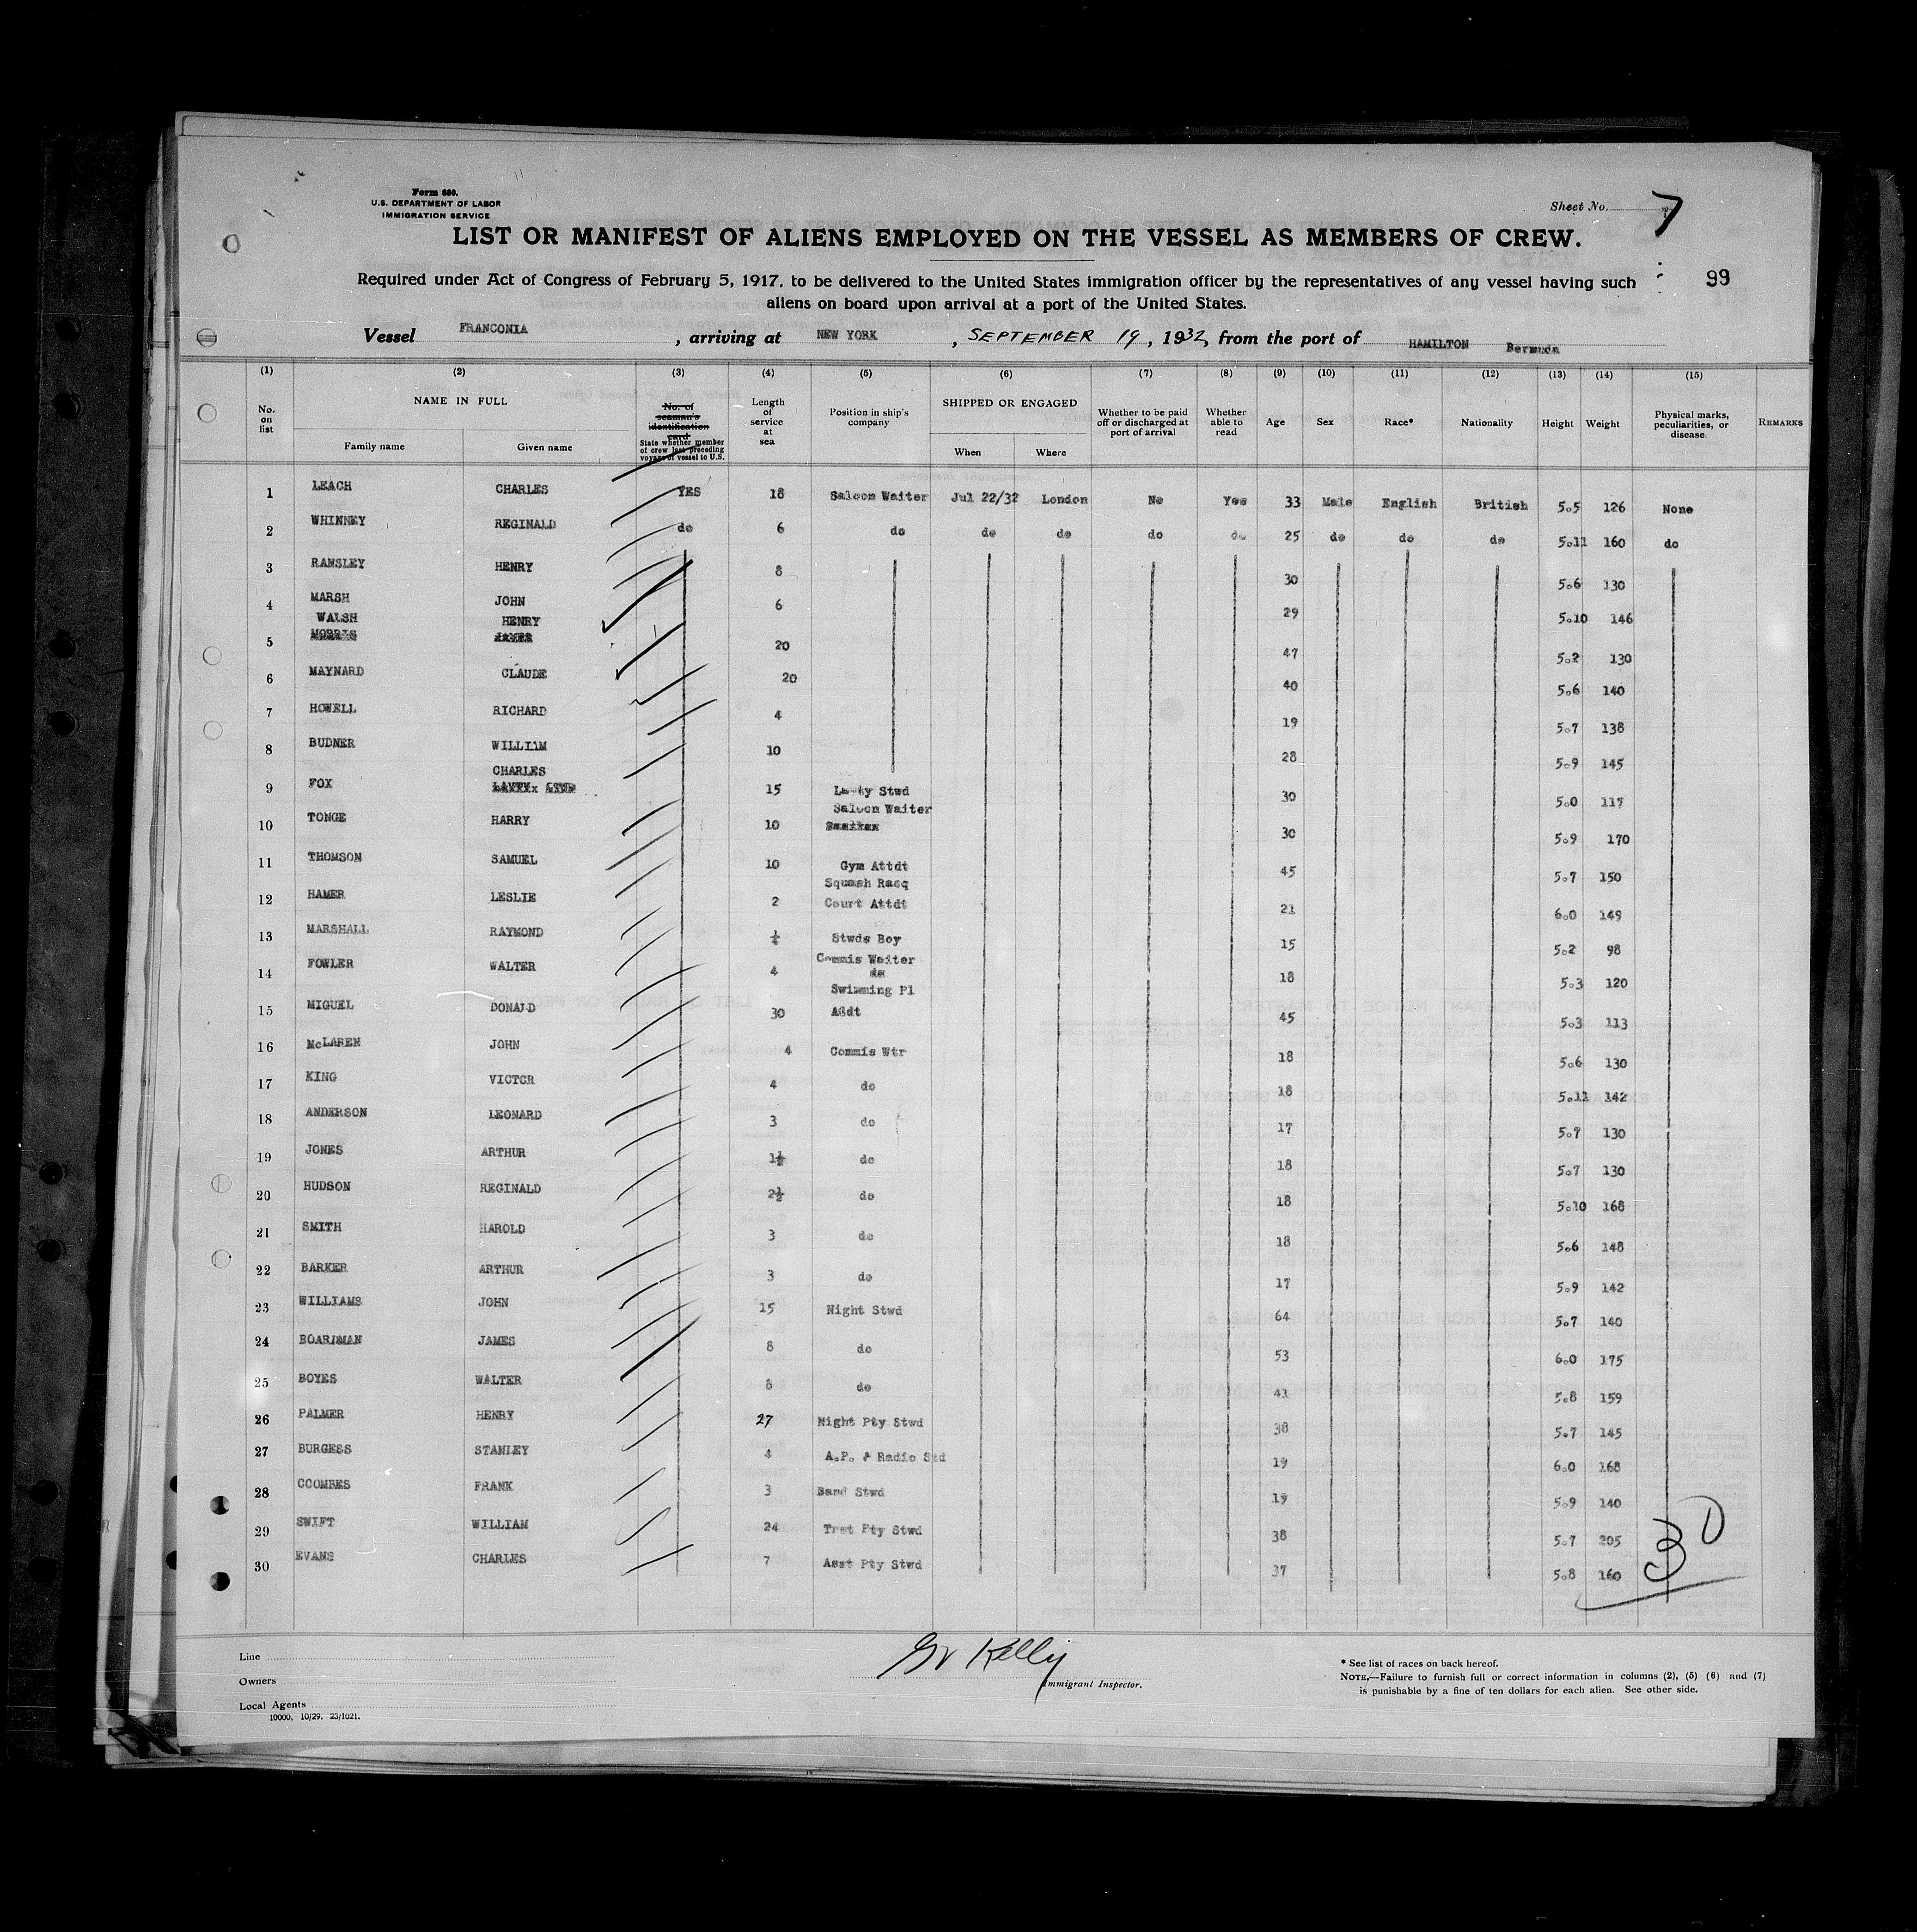 Form 680.
U.S. DEPARTMENT OF LABOR
IMMIGRATION SERVICE
Sheet No. 7
LIST OR MANIFEST OF ALIENS EMPLOYED ON THE VESSEL AS MEMBERS OF CREW.
Required under Act of Congress of February 5, 1917, to be delivered to the United States immigration officer by the representatives of any vessel having such
aliens on board upon arrival at a port of the United States.
99
Vessel FRANCONIA, arriving at NEW YORK, SEPTEMBER 19, 1932, from the port of HAMILTON Bermuda
(1) (2) (3) (4) (5) (6) (7) (8) (9) (10) (11) (12) (13) (14) (15)
No. on list NAME IN FULL Family name Given name No. of seaman's identification card State whether member of crew last preceding voyage of vessel to U.S. Length of service at sea Position in ship's company SHIPPED OR ENGAGED When Where Whether to be paid off or discharged at port of arrival Whether able to read Age Sex Race* Nationality Height Weight Physical marks, peculiarities, or disease. REMARKS
1 LEACH CHARLES YES 18 Saloon Waiter Jul 22/32 London No Yes 33 Male English British 5.5 126 None
2 WHINNEY REGINALD do 6 do do do do do 25 do do do 5.11 160 do
3 RANSLEY HENRY 8 30 5.6 130
4 MARSH JOHN 6 29 5.10 146
WALSH HENRY
5 MORRIS JAMES 20 47 5.2 130
6 MAYNARD CLAUDE 20 40 5.6 140
7 HOWELL RICHARD 4 19 5.7 138
8 BUDNER WILLIAM 10 28 5.9 145
CHARLES
9 FOX 15 Stwd 30 5.0 117
Saloon Waiter
10 TONGE HARRY 10 30 5.9 170
11 THOMSON SAMUEL 10 Gym Attdt 45 5.7 150
Squash Racq
12 HAMER LESLIE 2 Court Attdt 21 6.0 149
13 MARSHALL RAYMOND Stwds Boy 15 5.2 98
Commis Waiter
14 FOWLER WALTER 4 do 18 5.3 120
Swimming Pl
15 MIGUEL DONALD 30 Atdt 45 5.3 113
16 McLAREN JOHN 4 Commis Wtr 18 5.6 130
17 KING VICTOR 4 do 18 5.11 142
18 ANDERSON LEONARD 3 do 17 5.7 130
19 JONES ARTHUR 1½ do 18 5.7 130
20 HUDSON REGINALD 2½ do 18 5.10 168
21 SMITH HAROLD 3 do 18 5.6 148
22 BARKER ARTHUR 3 do 17 5.9 142
23 WILLIAMS JOHN 15 Night Stwd 64 5.7 140
24 BOARDMAN JAMES 8 do 53 6.0 175
25 BOYES WALTER 8 do 41 5.8 159
26 PALMER HENRY 27 Night Pty Stwd 38 5.7 145
27 BURGESS STANLEY 4 A.P. & Radio Std 19 6.0 168
28 COOMBES FRANK 3 Band Stwd 19 5.9 140
29 SWIFT WILLIAM 24 Trst Pty Stwd 38 5.7 205
30 EVANS CHARLES 7 Asst Pty Stwd 37 5.8 160
30
Line
Owners
Local Agents
10000. 10/29. 23/1021.
Kelly
Immigrant Inspector.
* See list of races on back hereof.
NOTE.—Failure to furnish full or correct information in columns (2), (5) (6) and (7)
is punishable by a fine of ten dollars for each alien. See other side.